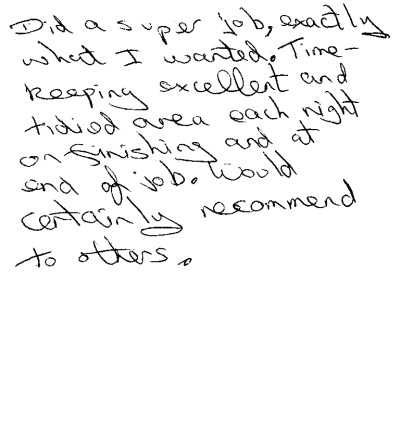 Did a super job, exactly
what I wanted. Time-
keeping excellent and
tidied area each night
on finishing and at
end of job. Would
certainly recommend
to others.